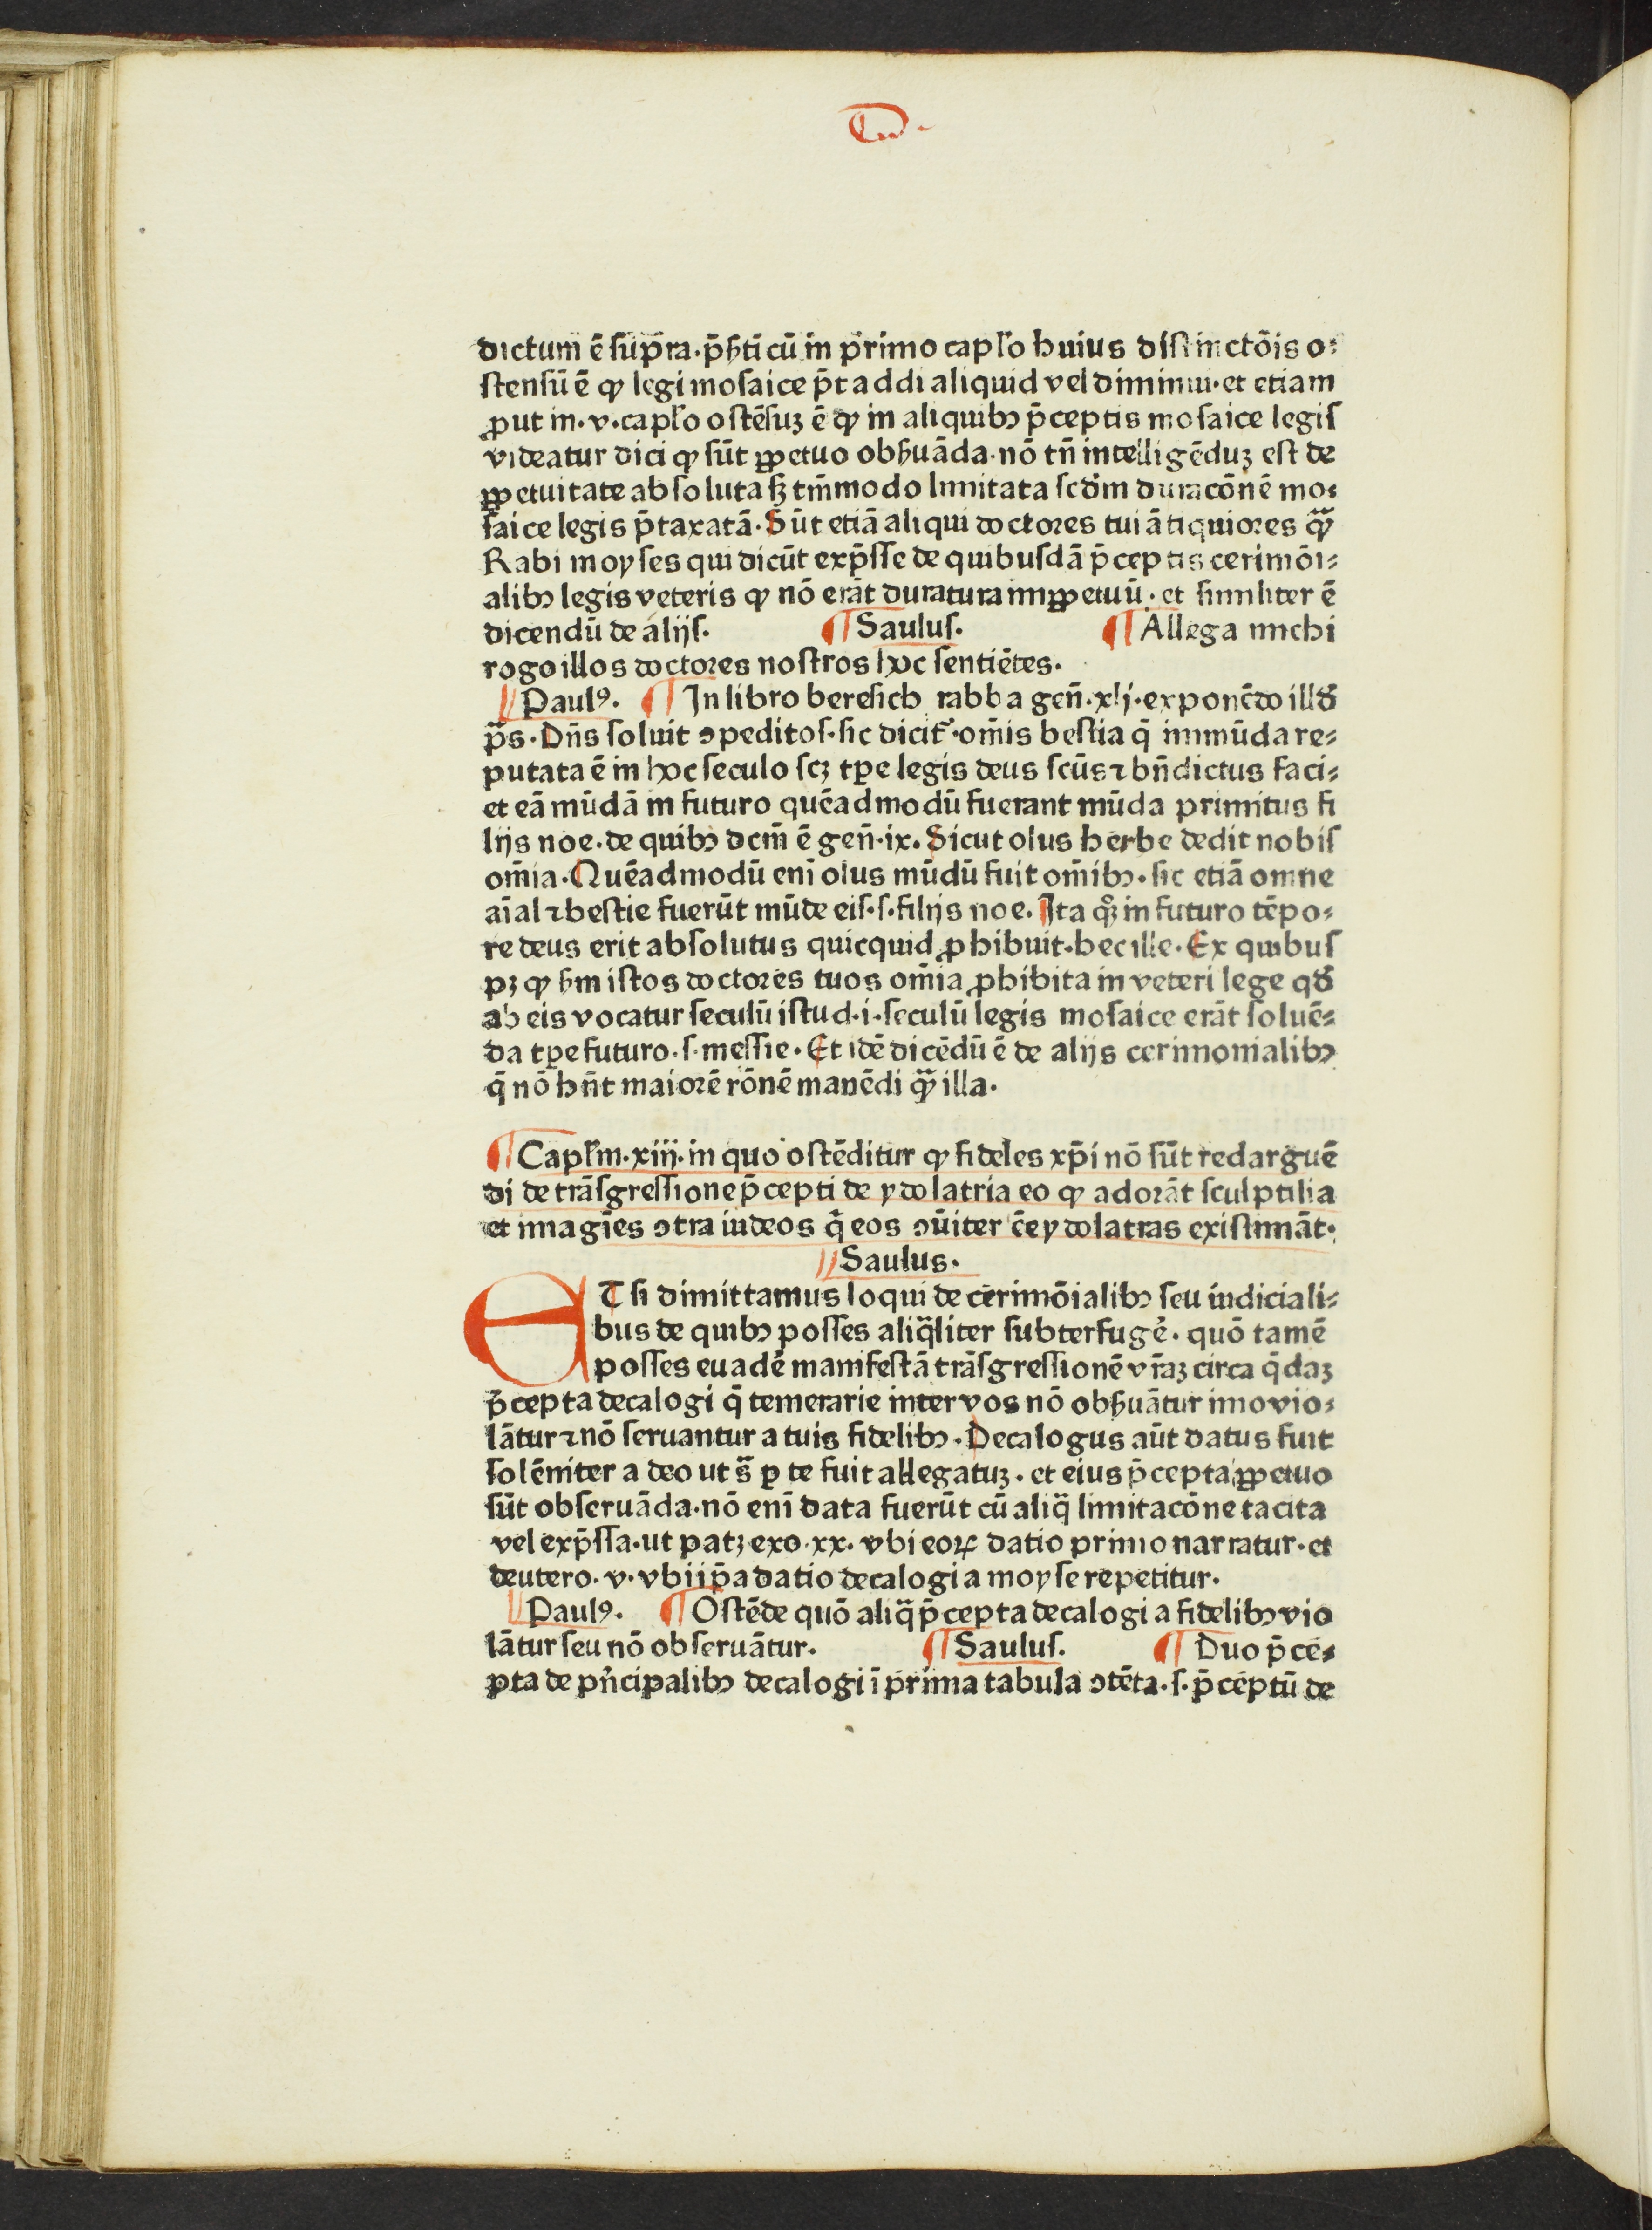 dictum ē sup̄ra·p̄ẜti cū in primo capľo huius distinctōis o⸗
ſtenſū ē ꝙ legi moſaice p̄t addi aliquid vel diminui·et etiam
ꝓut in·v·capľo oſtēſuꝫ ē ꝙ in aliquibꝰ p̄ceptis moſaice legiſ
videatur dici ꝙ ſūt ꝑpetuo obẜuāda·nō tn̄ intelligēduꝫ eſt de
ꝑpetuitate abſoluta ſꝫ tm̄modo limitata ſcd̄m duracōnē mo⸗
ſaice legis p̄taxatā·Sūt etiā aliqui doctores tui ātiquiores qᷓꝫ
Rabi moyſes qui dicūt exp̄ſſe de quibuſdā p̄ceptis cerimōi⸗
alibꝰ legis veteris ꝙ nō erāt duratura imꝑpetuū·et ſimiliter ē
dicendū de alijſ. ¶ Sauluſ. ¶ Allega michi
rogo illos doctores noſtros hoc ſentiētes.
Paulꝰ. ¶ In libro bereſich rabba gen̄·xlj·exponēdo illď
pᷓs·Dn̄s ſoluit ꝯpeditoſ·ſic dicit᷑·om̄is beſtia q̄ immūda re⸗
putata ē in hoc ſeculo ſcꝫ tꝑe legis deus ſcūs ⁊ bn̄dictus faci⸗
et eā mūdā in futuro quēadmodū fuerant mūda primitus fi
lijs noe·de quibꝰ dcm̄ ē gen̄·ix·Sicut olus herbe dedit nobiſ
om̄ia·Quēadmodū eni olus mūdū fuit om̄ibꝰ·ſic etiā omne
aīal ⁊ beſtie fuerūt mūde eiſ·ſ·filijs noe·Ita qꝫ in futuro tēpo⸗
re deus erit abſolutus quicquid ꝓhibuit·hec ille·Ex quibuſ
pꝫ ꝙ ẜm iſtos doctores tuos om̄ia ꝓhibita in veteri lege qď
ab eis vocatur ſeculū iſtud·i·ſeculū legis moſaice erāt ſoluē⸗
da tꝑe futuro·ſ·meſſie·Et idē dicēdū ē de alijs cerimonialibꝰ
q̄ nō hn̄t maiorē rōnē manēdi qᷓꝫ illa.
¶ Capľm·xiij·in quo oſtēditur ꝙ fideles xp̄i nō ſūt redarguē
di de trāſgreſſione p̄cepti de ydolatria eo ꝙ adorāt ſculptilia
et imagīes ꝯtra iudeos q̄ eos ꝯūiter ēe ydolatras exiſtimāt·
Saulus·
ET ſi dimittamus loqui de cerimōialibꝰ ſeu iudiciali⸗
bus de quibꝰ poſſes aliqᷓliter ſubterfugē·quō tamē
poſſes euadē manifeſtā trāſgreſſionē vr̄aꝫ circa q̄daꝫ
p̄cepta decalogi q̄ temerarie inter vos nō obẜuātur imo vio⸗
lātur ⁊ nō ſeruantur a tuis fidelibꝰ·Decalogus aūt datus fuit
ſolēniter a deo ut sᷓ ꝑ te fuit allegatuꝫ·et eius p̄cepta ꝑpetuo
ſūt obſeruāda·nō eni data fuerūt cū aliqᷓ limitacōne tacita
vel exp̄ſſa·ut patꝫ exo·xx·vbi eoꝝ datio primo narratur·et
deutero·v·vbi ip̄a datio decalogi a moyſe repetitur.
Paulꝰ. ¶ Oſtēde quō aliqᷓ p̄cepta decalogi a fidelibꝰ vio
lātur ſeu nō obſeruātur. ¶ Sauluſ. ¶ Duo p̄ce⸗
pta de pn̄cipalibꝰ decalogi ī prima tabula ꝯtēta·ſ·p̄ceptū de